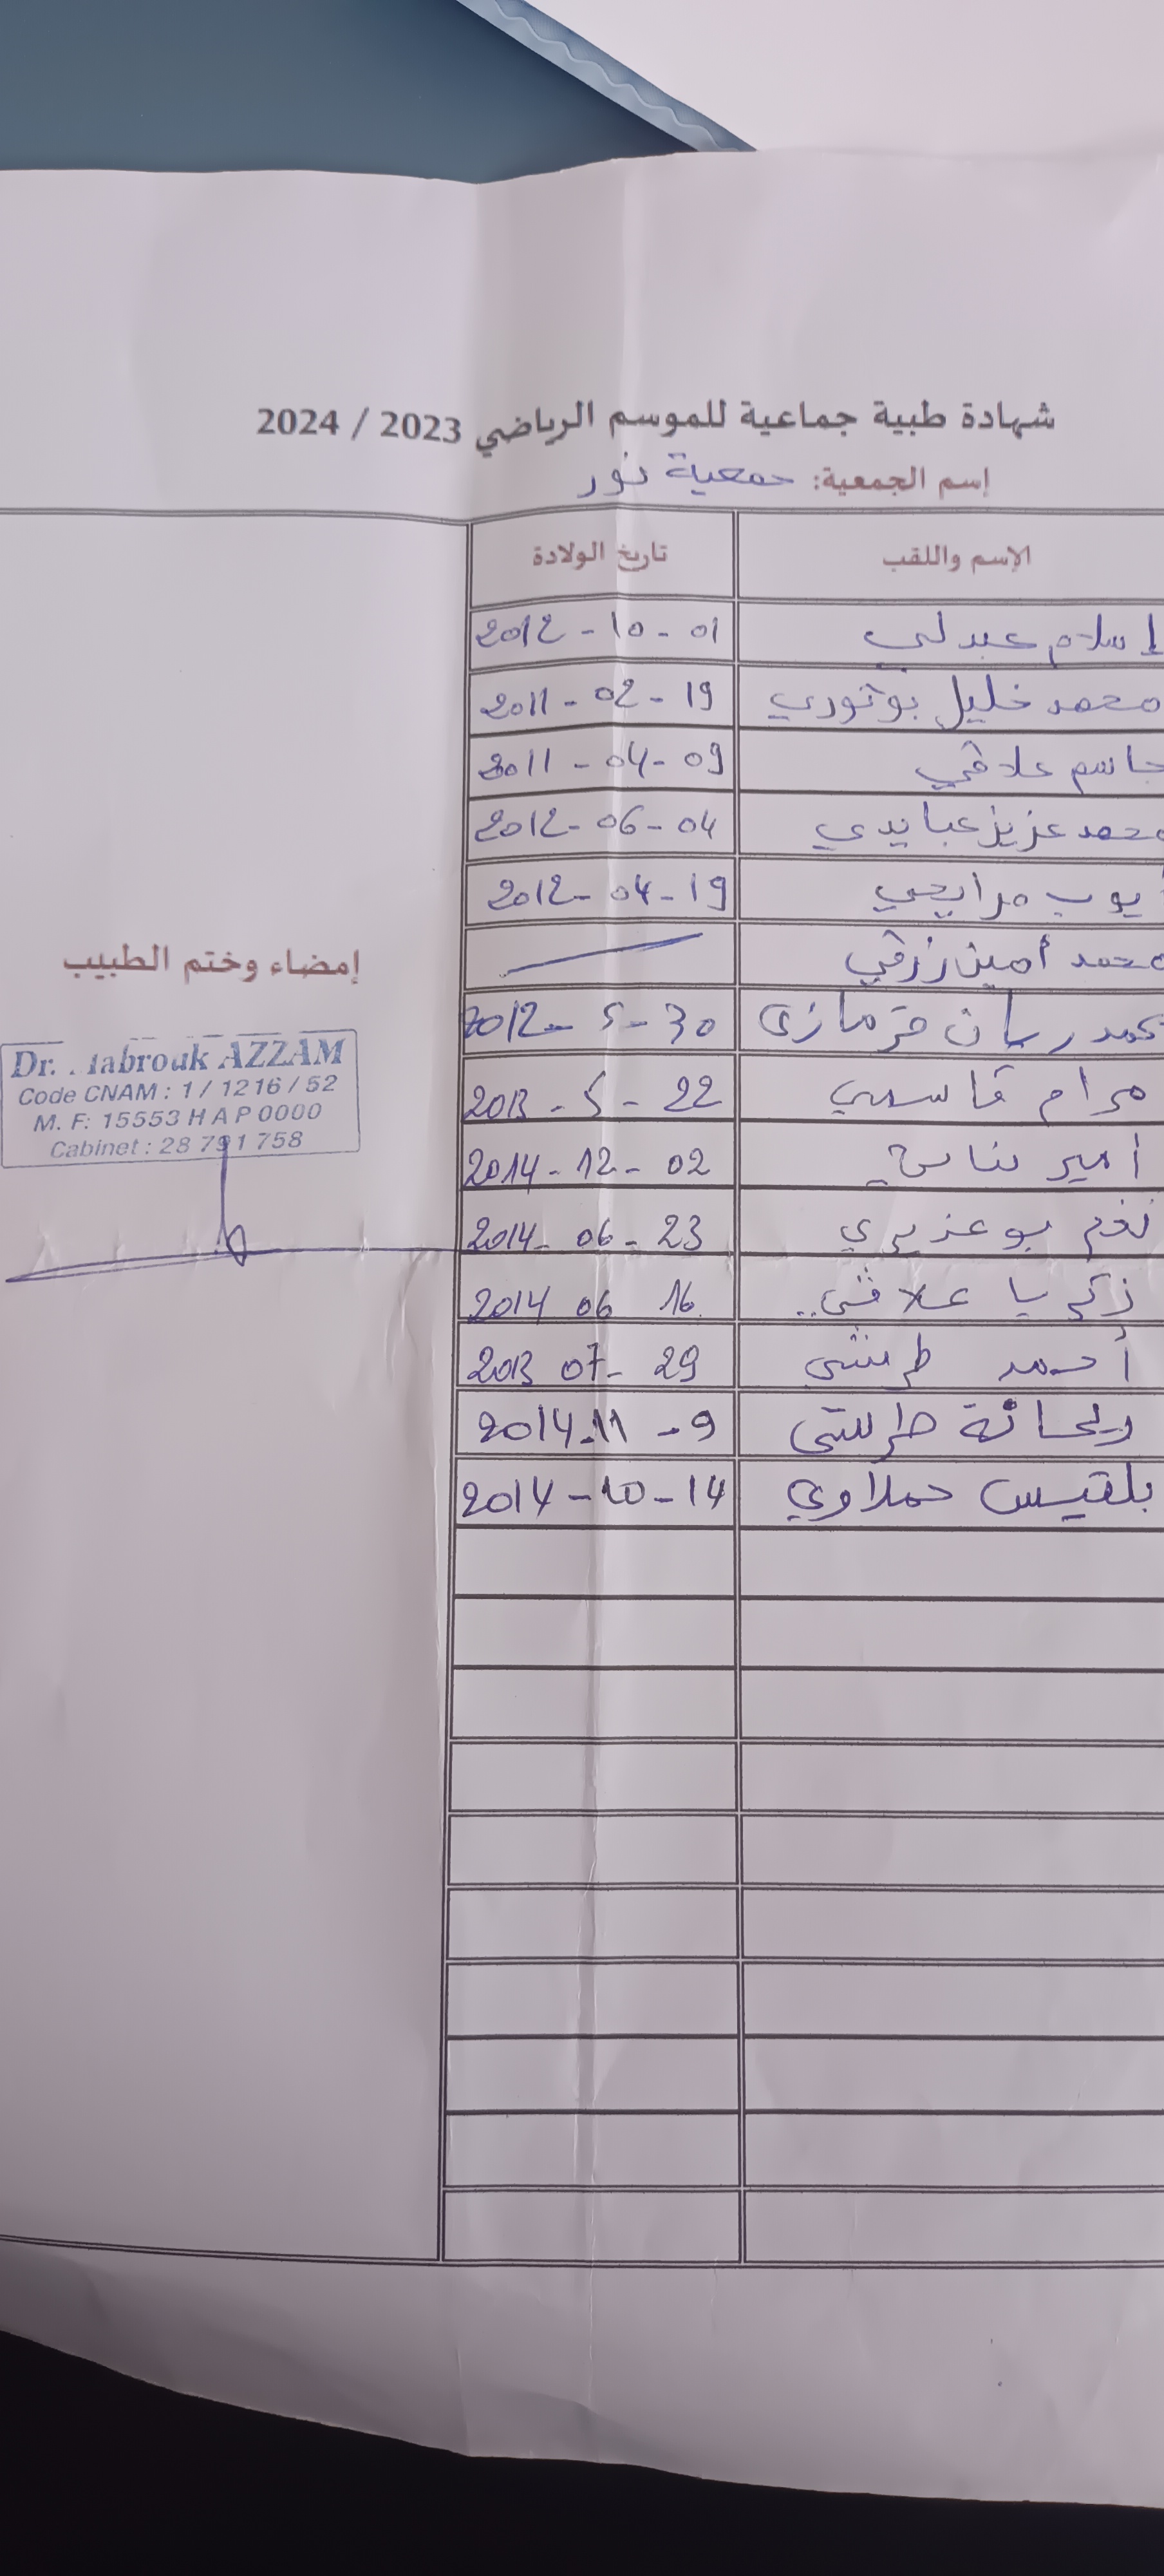 شهادة طبية جماعية للموسم الرياضي 2023 / 2024
إسم الجمعية: جمعية نور
الإسم واللقب تاريخ الولادة
إسلام عبدلي 2012 - 10 - 01
محمد خليل بوثوري 2011 - 02 - 19
جاسم علاقي 2011 - 04 - 09
محمد عزيز عبايدي 2012 - 06 - 04
أيوب مرايحي 2012 - 04 - 19
محمد أمين زرقي
محمد ريان قرمازي 2012 - 5 - 30
مرام قاسمي 2013 - 5 - 22
أمير 2014 - 12 - 02
نغم بوعزيزي 2014 - 06 - 23
زكريا علاقي 2014 06 16
أحمد طرشي 2013 07 - 29
ريحانة طرشي 2014 - 11 - 9
بلقيس حملاوي 2014 - 10 - 14
إمضاء وختم الطبيب
Dr. AZZAM
Code CNAM : 1 / 1216 / 52
M. F: 15553 H A P 0000
Cabinet : 28 791 758